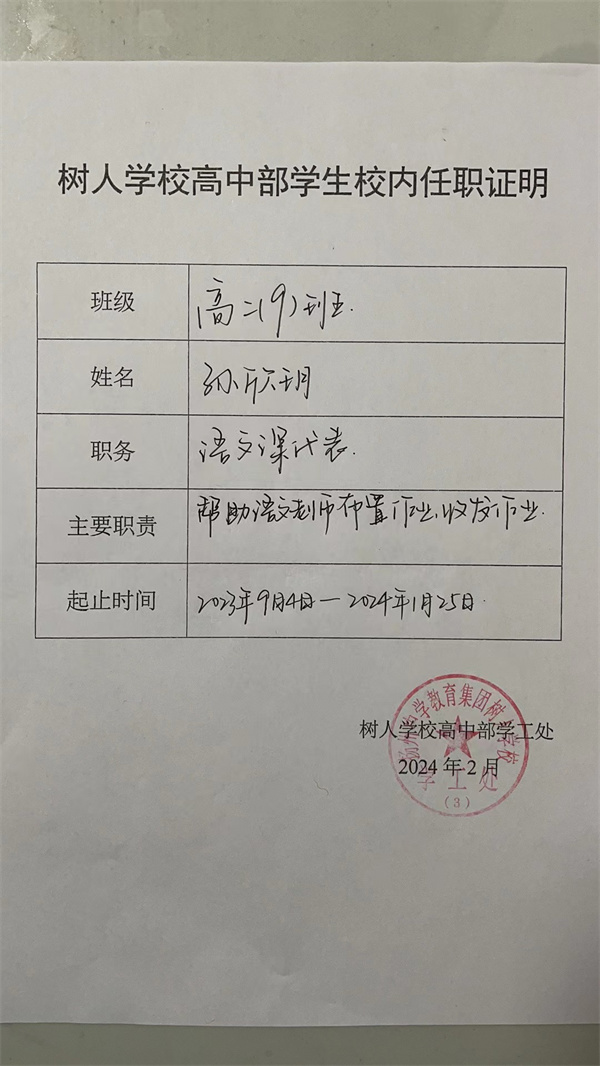 树人学校高中部学生校内任职证明
班级 高二(9)班.
姓名 孙欣玥
职务 语文课代表.
主要职责 帮助语文老师布置作业、收发作业.
起止时间 2023年9月4日—2024年1月25日.
树人学校高中部学工处
2024年2月
扬州中学教育集团树人学校
学工处
(3)